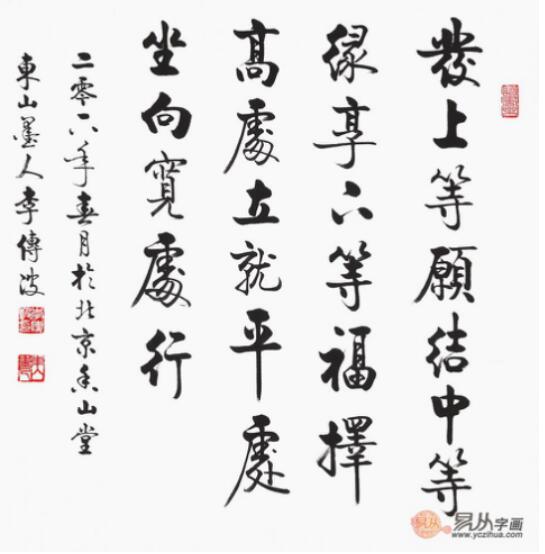 發上等願結中等
緣享下等福擇
高處立就平處
坐向寬處行
二零一六年春月於北京香山堂
東山墨人李傳波
易从字画
www.yczihua.com